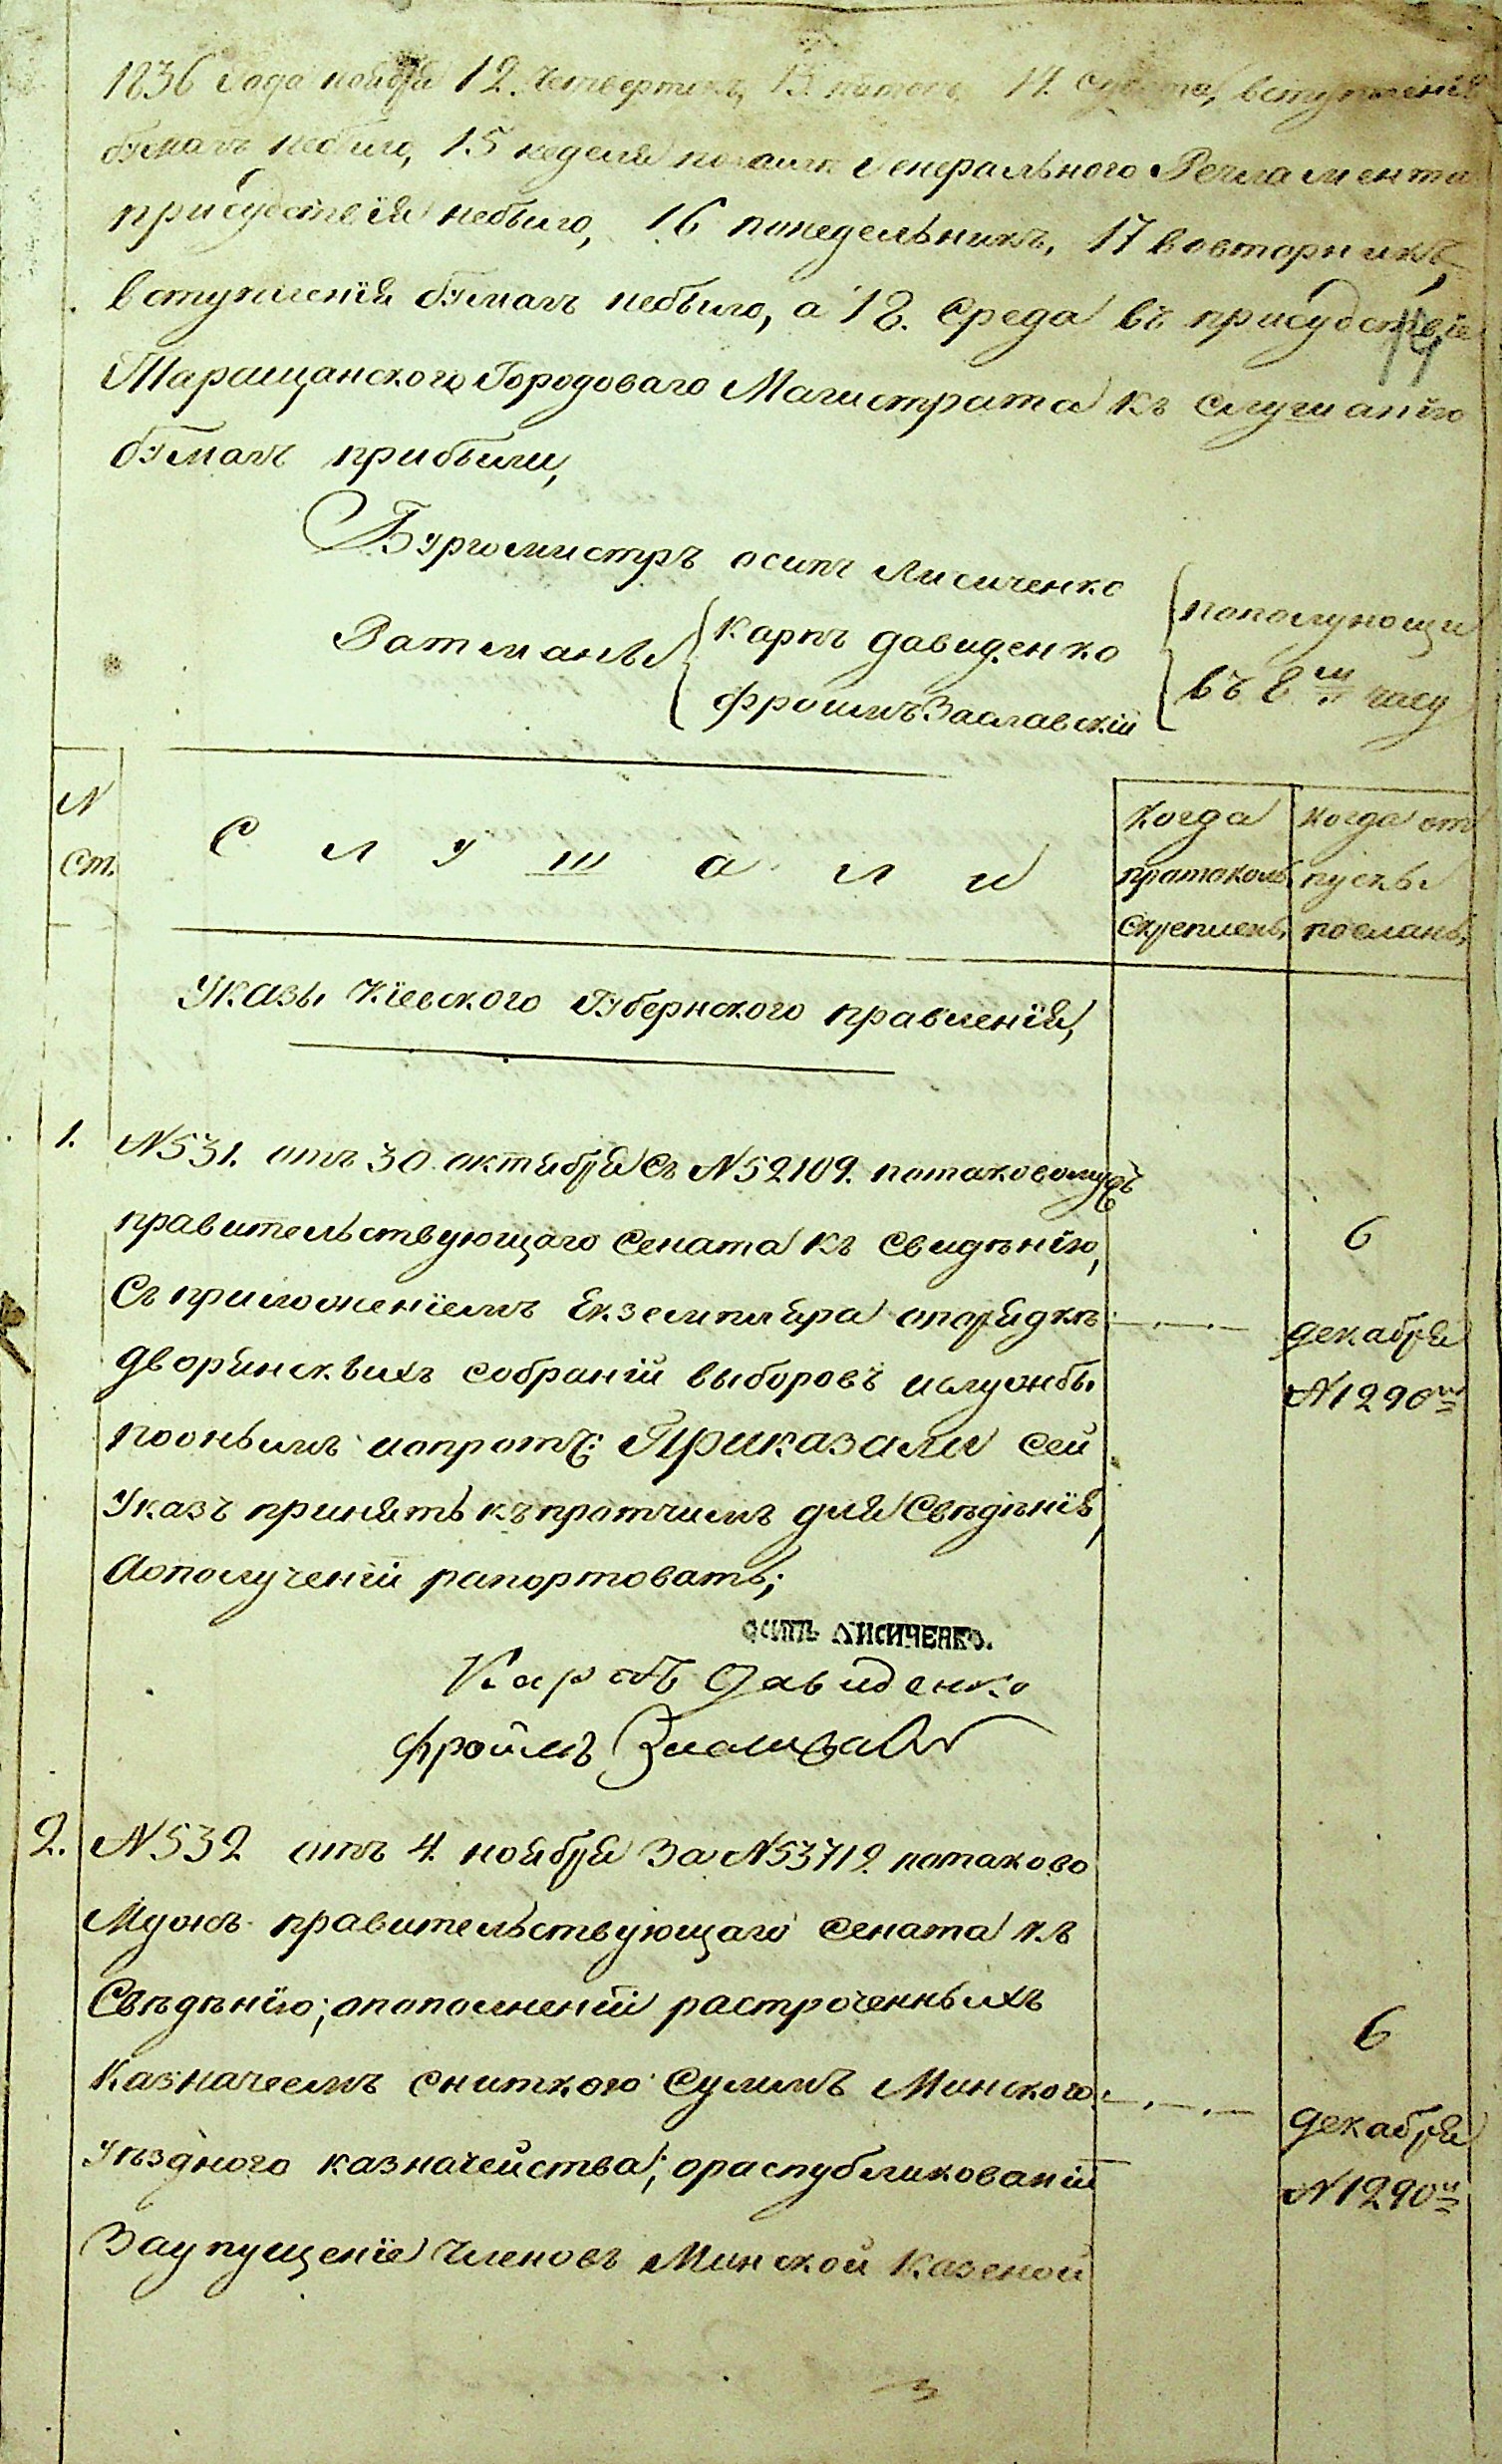 1836 года ноября 12. Четвертикъ, 13. пятокъ, 14. Субота, вступленія
бумагъ небыло, 15 неделя посилѣ Генеральнаго Регламента
присудствія небыло, 16 понедельникъ, 17 вовторникъ,
вступленія бумагъ небыло, а 18. Среда въ присудствіе
Таращанского Городоваго Магистрата къ слушанію
бумагъ прибыли,
Бургомистръ осипъ Лисиченко
Ратманы
карпъ давиденко
фроимъ Заславскій
пополунощи
въ 8м часу
19
N
ст.
С л у ш а л и
когда
протоколъ
скрепленъ,
когда от
пускъ
посланъ,
Указы Кіевского Губернского правленія,
1. N531. отъ 30. октября съ N52109. потаковомужъ
правительствующаго Сената къ Свидѣнію,
Съ приложеніемъ Екземпляра опорядкѣ
дворянскихъ собраній выборовъ ислужбы
поонымъ ипротч: Приказали сей
Указъ принять къ протчимъ для Свѣдѣнія,
Аополученіи рапортовать;
6
декабря
N1290м
осипъ лисиченко.
Карпъ Давиденко
Фроимъ
2. N532 отъ 4. ноября За N53719. потаково
Мужъ правительствующаго сената къ
Свѣдѣнію; опополненіи растроченныхъ
Казначеемъ Сниткого Сумимъ Минского
уѣздного казначейства; ораспубликованіи
Заупущеніе Членовъ Минской Казеной
6
декабря
N1290м